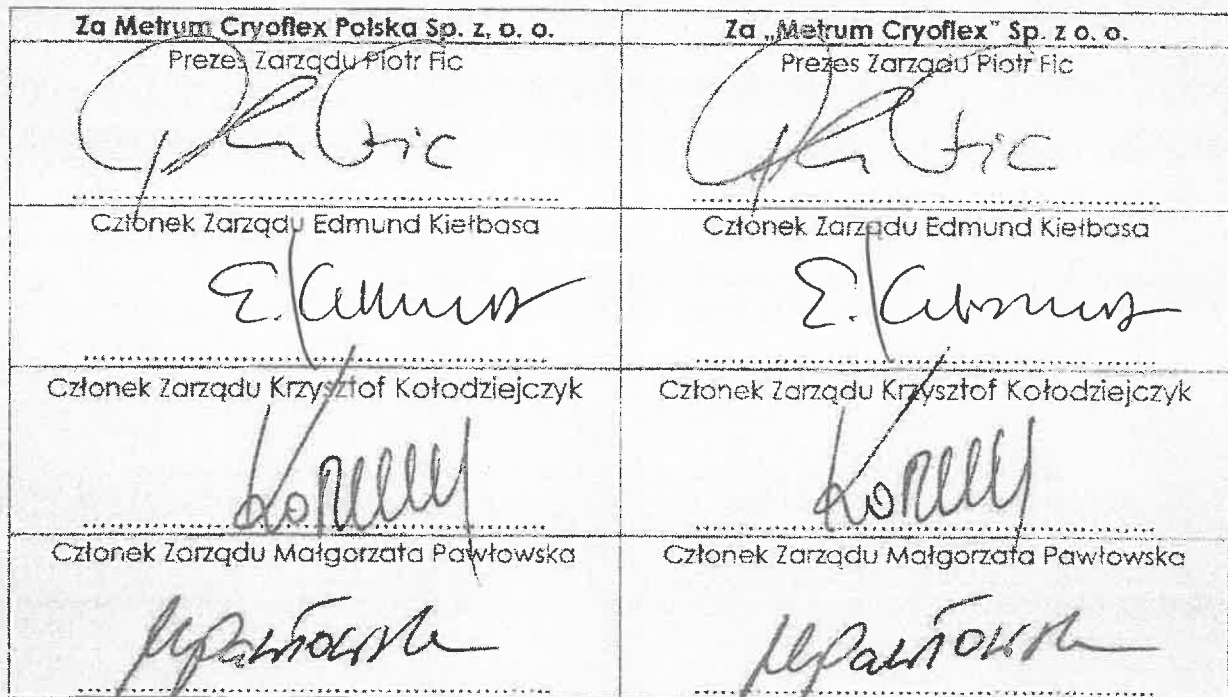 Za Metrum Cryoflex Polska Sp. z, o. o.
Za „Metrum Cryoflex" Sp. z o. o.
Prezes Zarządu Piotr Fic
Prezes Zarządu Piotr Fic
Członek Zarządu Edmund Kiełbasa
Członek Zarządu Edmund Kiełbasa
Członek Zarządu Krzysztof Kołodziejczyk
Członek Zarządu Krzysztof Kołodziejczyk
Członek Zarządu Małgorzata Pawłowska
Członek Zarządu Małgorzata Pawłowska